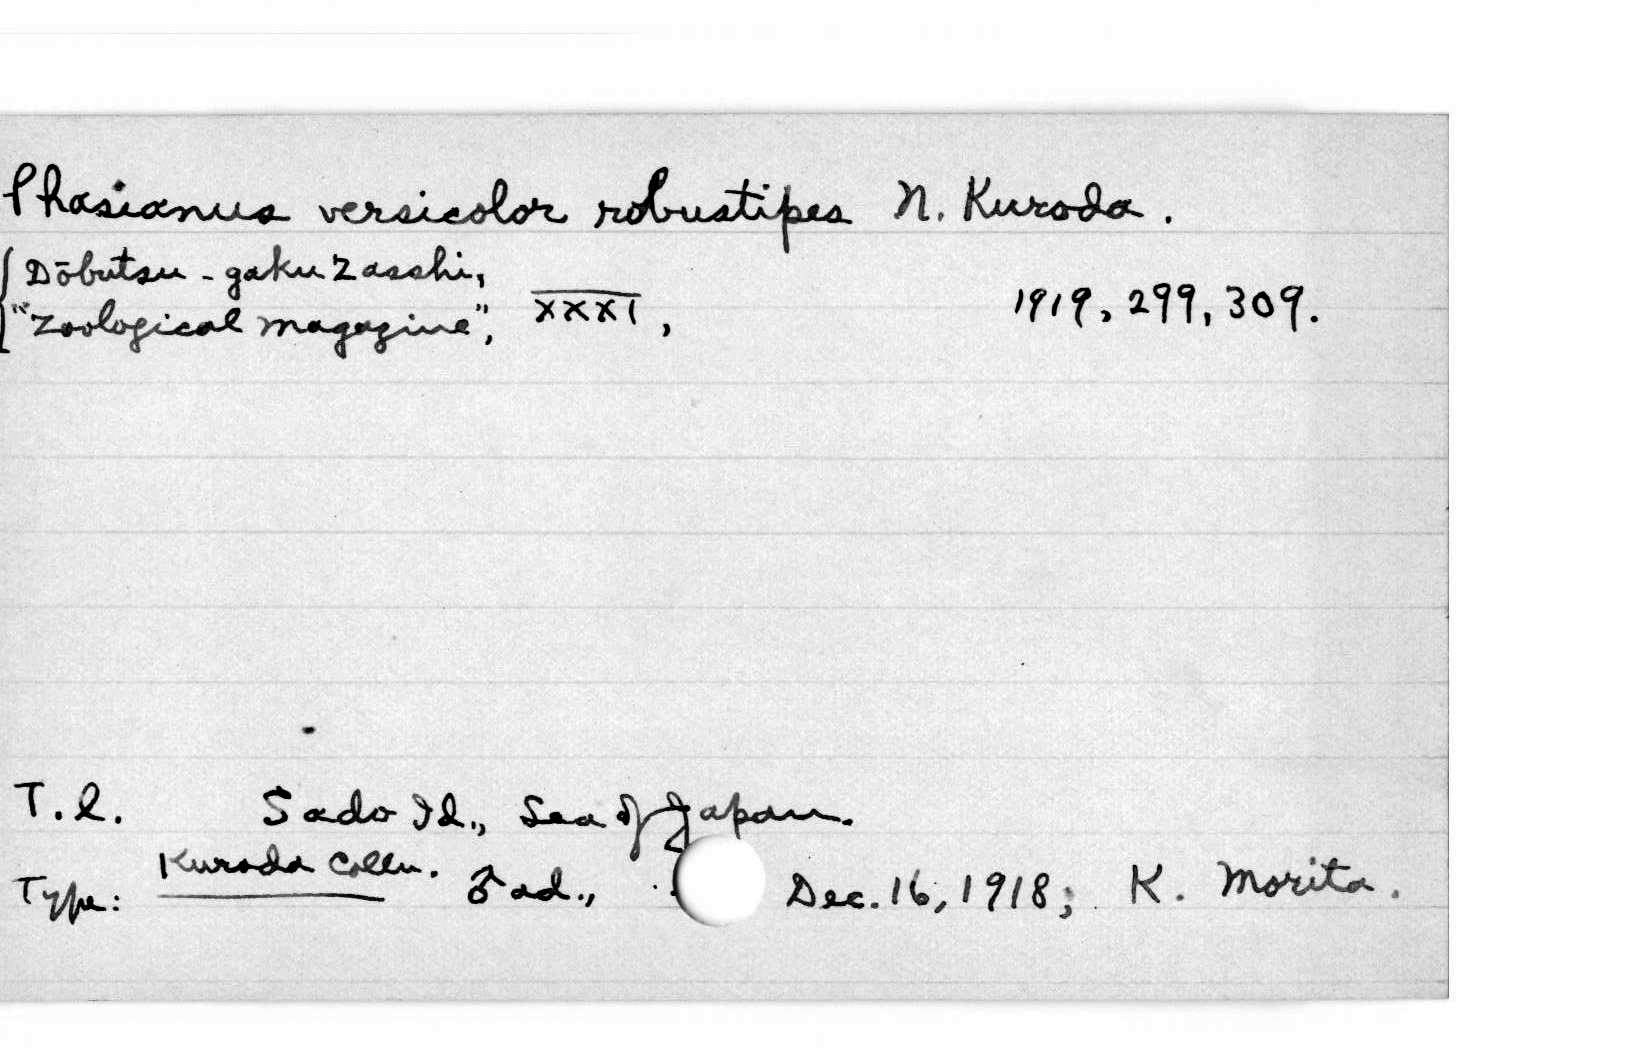 Phasianus versicolor robustipes N. Kuroda.
Dōbutsu-gaku Zasshi,
"Zoological Magazine", XXXI, 1919, 299, 309.
T.l. Sado Id., Sea of Japan.
Type: Kuroda Colln. ♂ ad., Dec. 16, 1918; K. Morita.